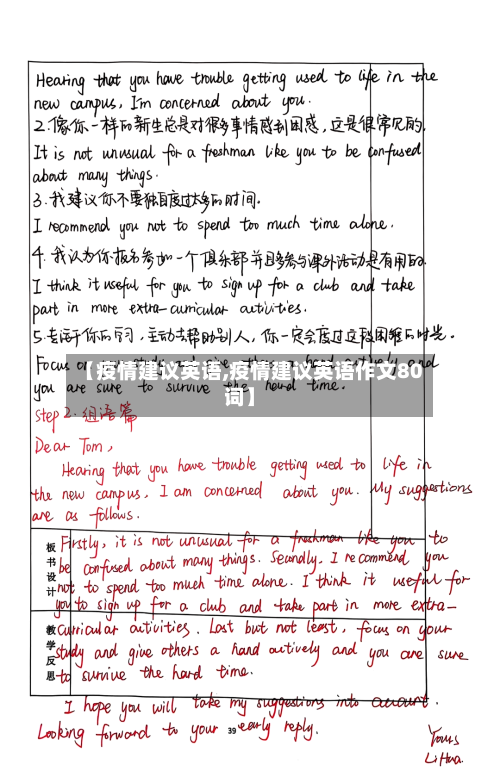 Hearing that you have trouble getting used to life in the
new campus, I'm concerned about you.
2.像你一样的新生总是对很多事情感到困惑,这是很常见的.
It is not unusual for a freshman like you to be confused
about many things.
3.我建议你不要独自度过太多的时间.
I recommend you not to spend too much time alone.
4.我认为你报名参加一个俱乐部并且参与课外活动是有用的
I think it useful for you to sign up for a club and take
part in more extra-curricular activities.
5.专注于你的学习,主动去帮助别人,你一定会度过这段困难的时光.
Focus on and
you are sure to survive the hard time.
【疫情建议英语,疫情建议英语作文80
词】
Step 2.组语篇
Dear Tom,
Hearing that you have trouble getting used to life in
the new campus, I am concerned about you. My suggestions
are as follows.
Firstly, it is not unusual for a freshman like you to
be confused about many things. Secondly, I recommend you
not to spend too much time alone. I think it useful for
you to sign up for a club and take part in more extra-
curricular activities. Last but not least, focus on your
study and give others a hand actively and you are sure
to survive the hard time.
板书设计
教学反思
I hope you will take my suggestions into account.
Looking forward to your early reply.
39
Yours
Li Hua.